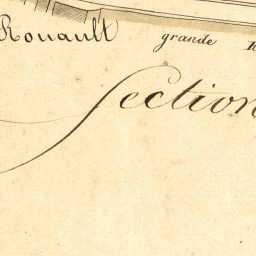 Rouault
grande
Section